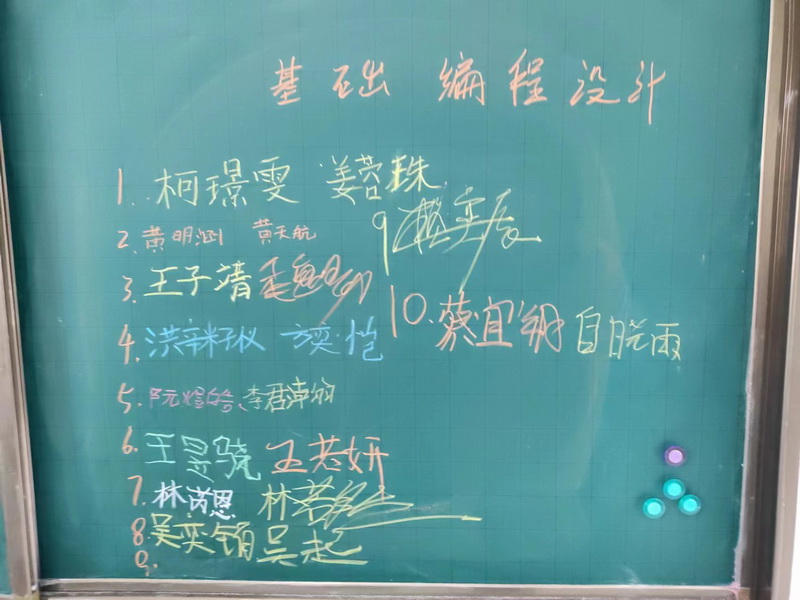 基础 编程设计
1. 柯璟雯 姜蓉珠
2. 黄明涵 黄天航
3. 王子靖
4. 洪 方奕恺
5. 阮煜皓、李君
6. 王昱骁 王若妍
7. 林芮恩 林若
8 吴奕銷 吴起
9.
9
10. 蔡宜 自晓雨